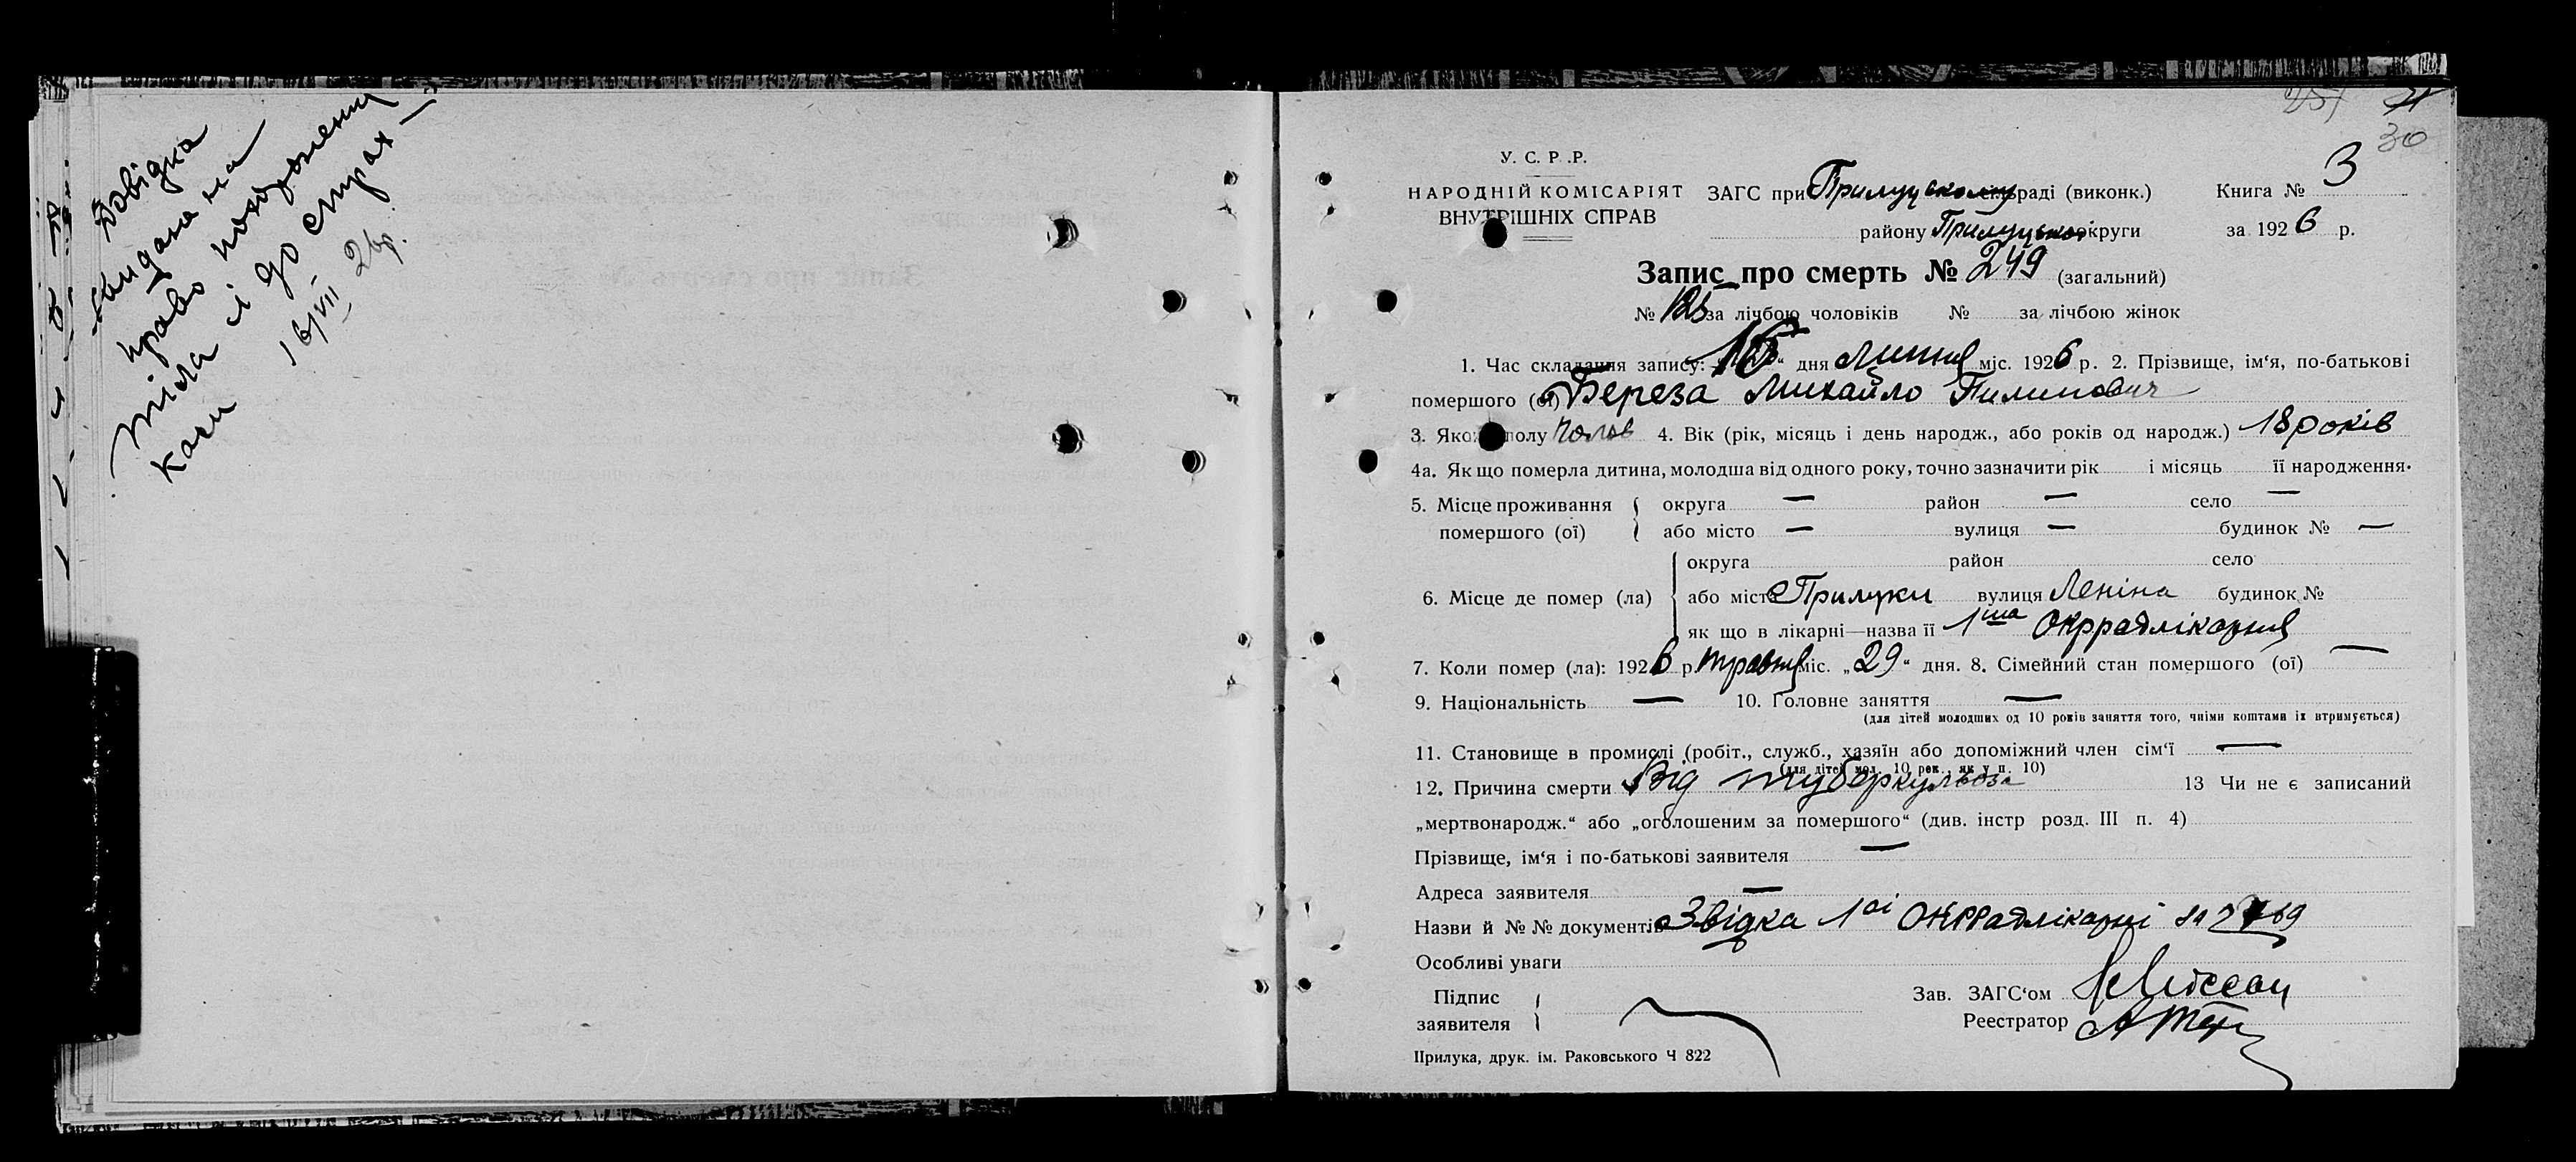 Довідка
видана на
право похорження
тіла і до страх
каси
16/VII 26р.
30
У. С. Р. Р.
НАРОДНІЙ КОМІСАРІЯТ
ВНУТРІШНІХ СПРАВ
ЗАГС при Прилуцькому сільраді (виконк.) Книга № 3
району Прилуцької округи за 1926 р.
Запис про смерть № 249 (загальний)
№ 125 за лічбою чоловіків № за лічбою жінок
1. Час складання запису: „16“ дня Липня міс. 1926 р. 2. Прізвище, ім‘я, по-батькові
помершого (ої) Береза Михайло Пилипович
3. Якого полу чолов 4. Вік (рік, місяць і день народж., або років од народж.) 18 років
4а. Як що померла дитина, молодша від одного року, точно зазначити рік і місяць її народження.
5. Місце проживання помершого (ої) { округа — район — село —
або місто — вулиця — будинок № —
6. Місце де помер (ла) { округа район село
або місто Прилуки вулиця Леніна будинок №
як що в лікарні—назва її 1ша Окррадлікарня
7. Коли помер (ла): 1926 р. травня міс. „29“ дня. 8. Сімейний стан помершого (ої) —
9. Національність — 10. Головне заняття —
(для дітей молодших од 10 років заняття того, чиїми коштами їх втримується)
11. Становище в промислі (робіт., служб., хазяїн або допоміжний член сім‘ї —
(для дітей мол. 10 рок., як у п. 10)
12. Причина смерти Від туберкульоза 13 Чи не є записаний
„мертвонародж.“ або „оголошеним за помершого“ (див. інстр розд. III п. 4)
Прізвище, ім‘я і по-батькові заявителя —
Адреса заявителя —
Назви й №№ документів Звідка 1ої Окррадлікарні
Особливі уваги
Підпис заявителя {
Зав. ЗАГС‘ом
Реестратор
Прилука, друк. ім. Раковського Ч 822